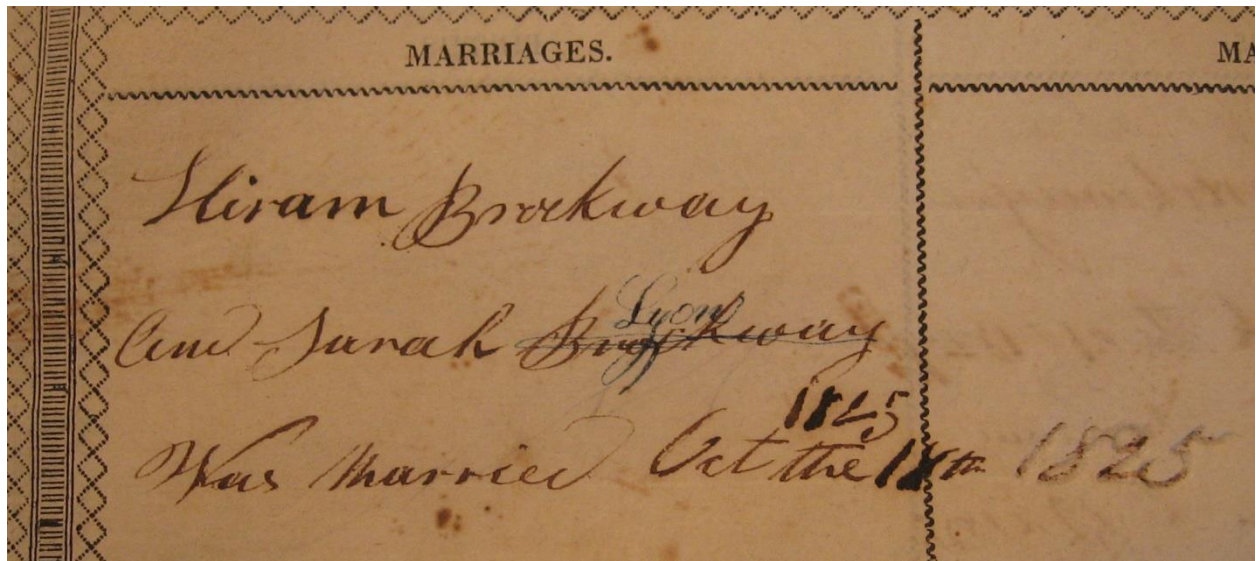 MARRIAGES.
MA
Hiram Brockway
Lyon
And Sarah Brockway
1825
Was Married Oct the 18th 1825